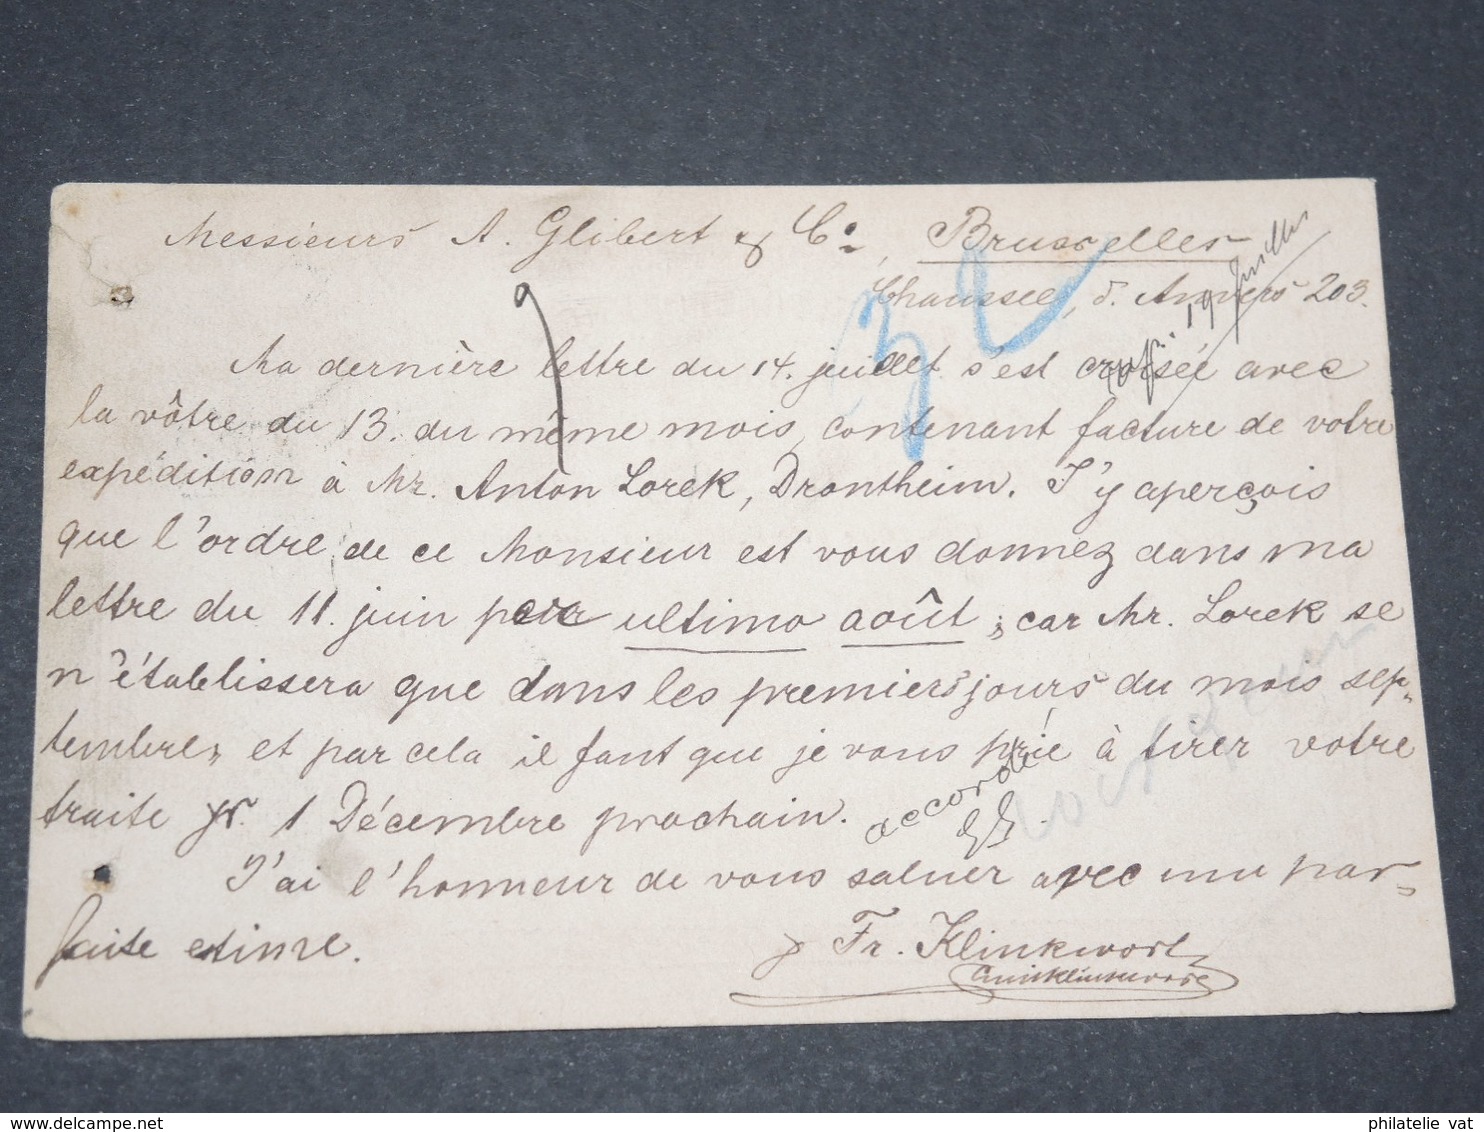 Messieurs A. Glibert & Co, Bruxelles
Chaussée, d. Anvers 203.
19 juillet
Ma dernière lettre du 14. juillet s'est croisée avec
la vôtre du 13. du même mois, contenant facture de votre
expédition à Mr. Anton Lorek, Drontheim. J'y aperçois
que l'ordre de ce Monsieur est vous donnez dans ma
lettre du 11. juin pour ultimo août; car Mr. Lorek se
n'établissera que dans les premiers jours du mois sep-
tembre, et par cela il faut que je vous prie à tirer votre
traite pr. 1 Décembre prochain.
accordé
J'ai l'honneur de vous saluer avec une par-
faite estime.
Fr. Klinkwort
philatelie vat
www.delcampe.net